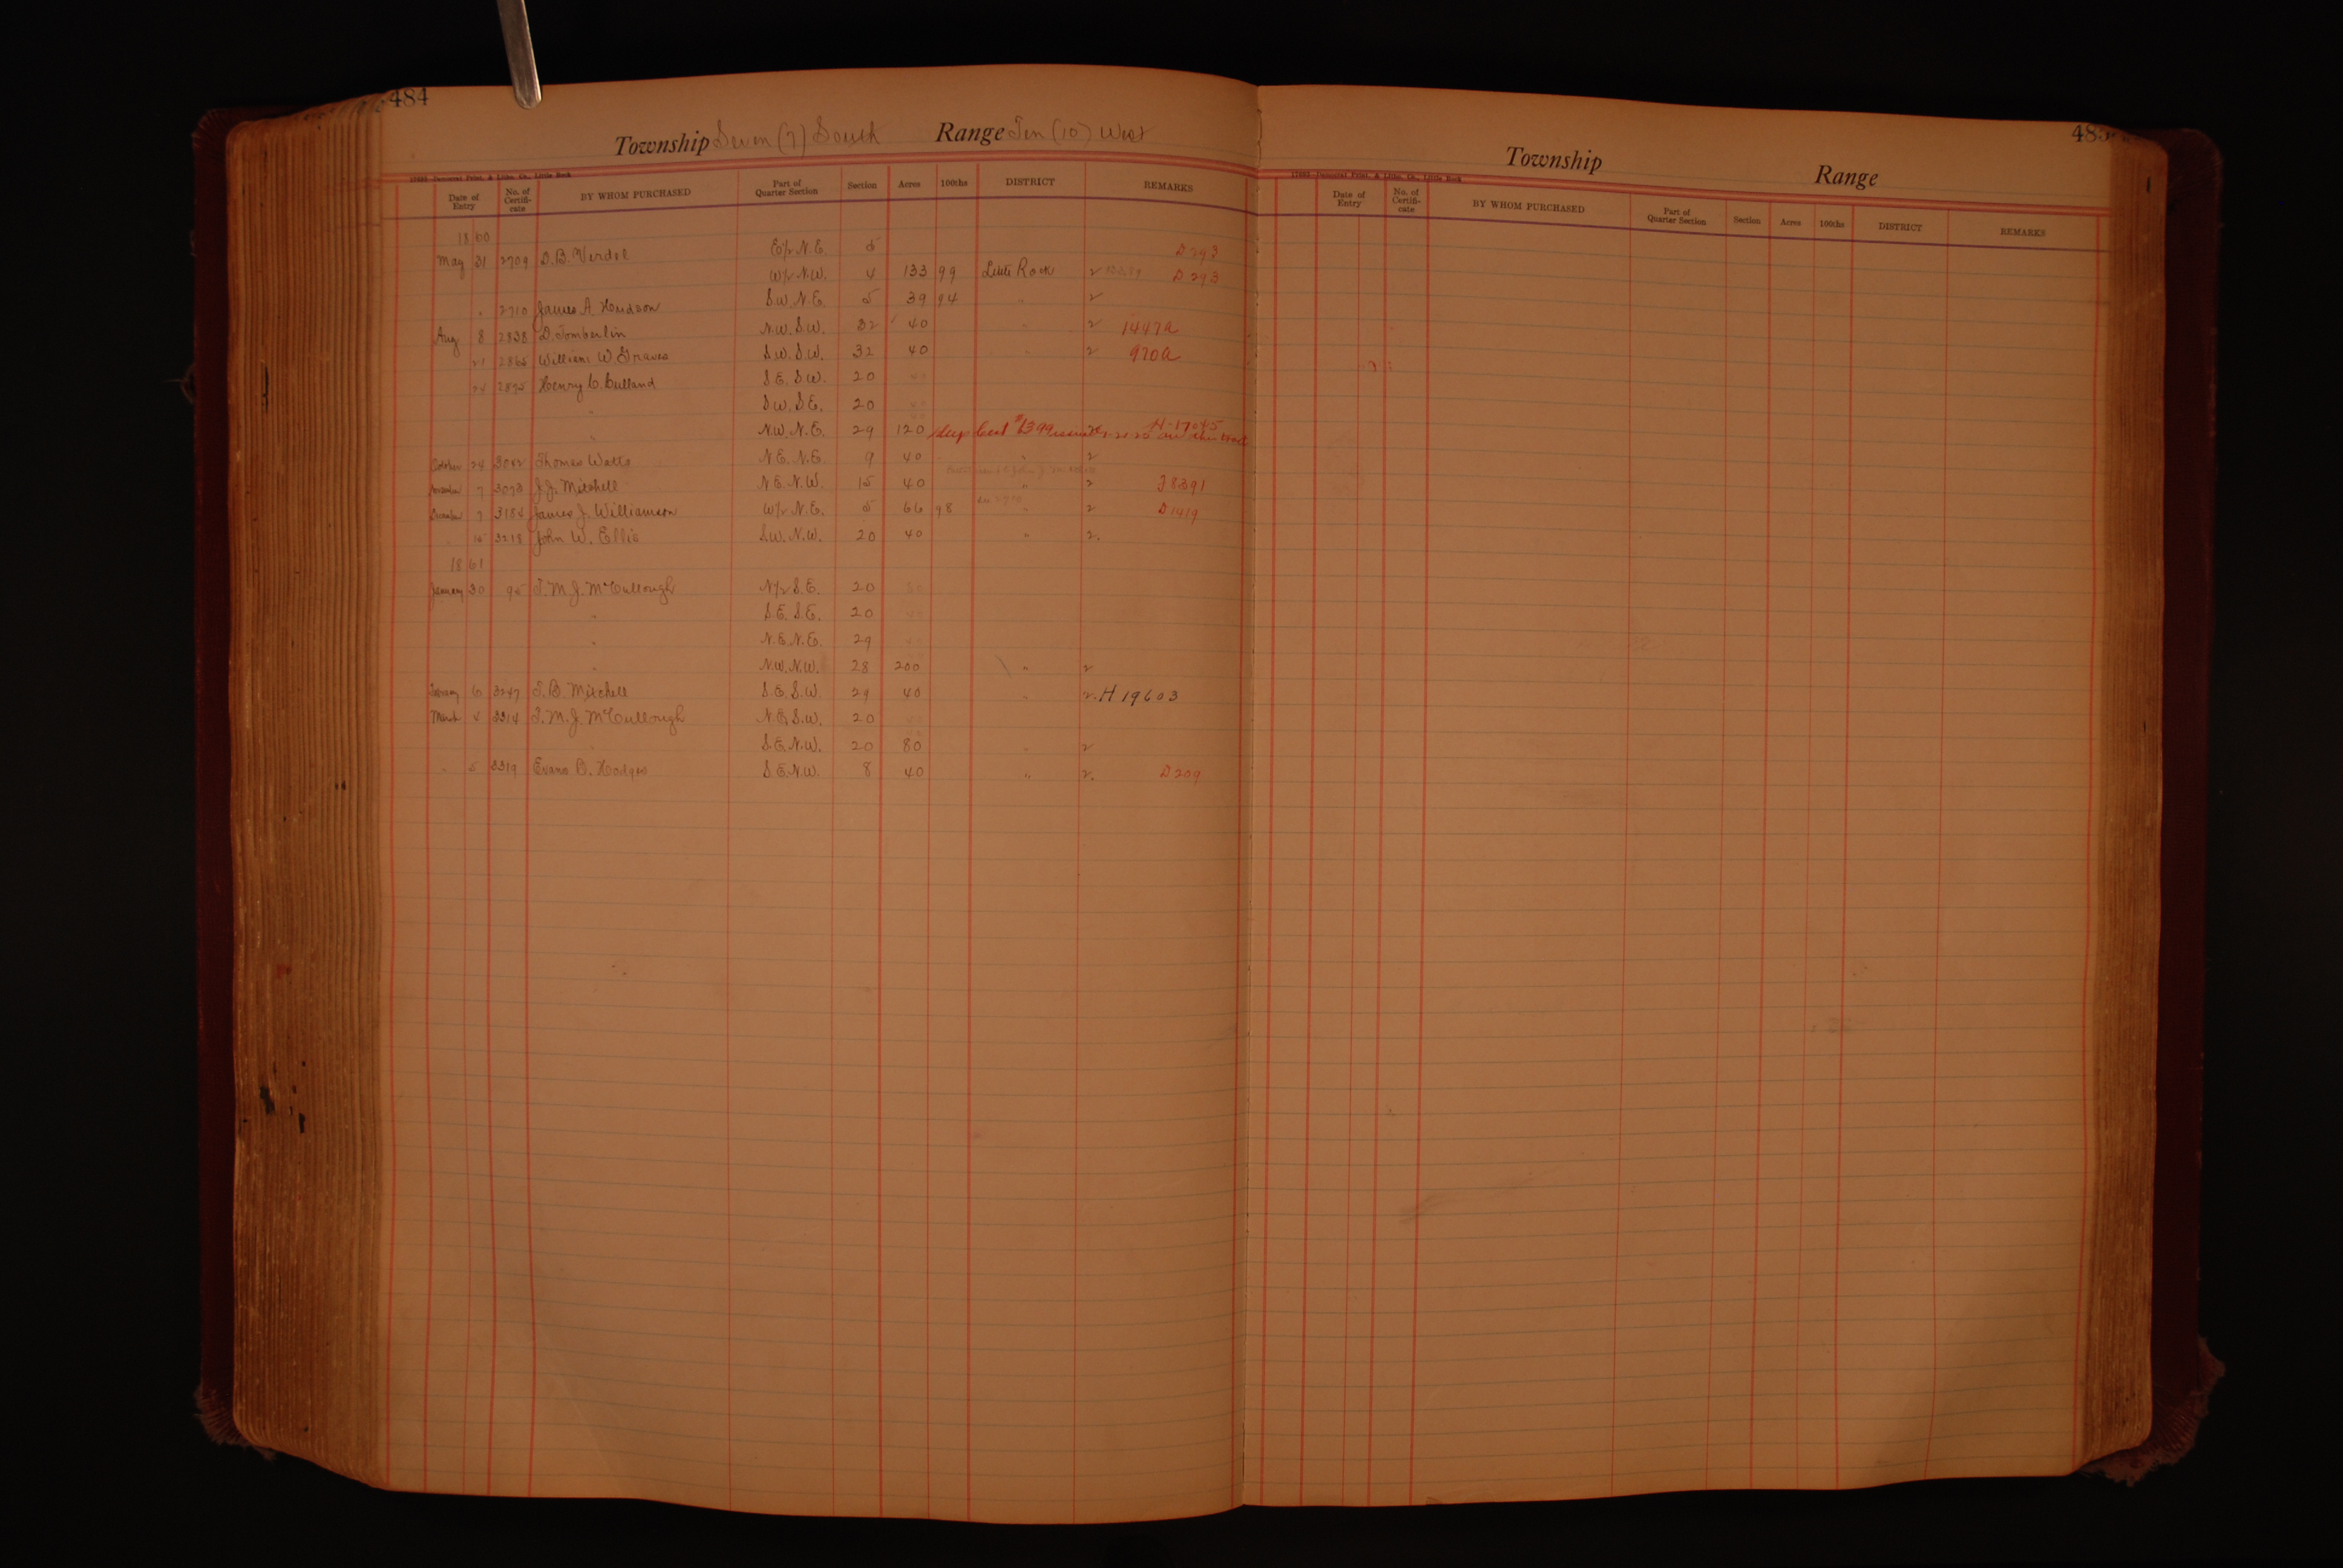 484
Township Seven (7) South Range Ten (10) West
17693—Democrat Print. & Litho. Co., Little Rock
Date of Entry No. of Certifi-cate BY WHOM PURCHASED Part of Quarter Section Section Acres 100ths DISTRICT REMARKS
1860
May 31 2709 D.B. Verdel E/2 N.E. 5 D 293
W/2 N.W. 4 133 99 Little Rock D 293
" 2710 James A. Hudson S.W. N.E. 5 39 94 "
Aug 8 2838 D. Tomberlin N.W. S.W. 32 40 " 1447a
21 William W. Graves S.W. S.W. 32 40 " 970a
24 Henry C. Culland S.E. S.W. 20
" S.W. S.E. 20
" N.W. N.E. 29 120 Cert #1399 H-17045
October 24 3042 Thomas Watts N.E. N.E. 9 40 "
November 7 3073 J.J. Mitchell N.E. N.W. 15 40 " J8391
December 7 3184 James J. Williamson W/2 N.E. 5 66 98 " D1419
15 3218 John W. Ellis S.W. N.W. 20 40 "
1861
January 30 95 T.M.J. McCullough N/2 S.E. 20
" S.E. S.E. 20
" N.E. N.E. 29
" N.W. N.W. 28 200 "
February 6 3247 S.B. Mitchell S.E. S.W. 29 40 " H 19603
March 4 3314 T.M.J. McCullough N.E. S.W. 20
" S.E. N.W. 20 80 "
" 5 3319 Evans B. Hodges S.E. N.W. 8 40 " D 209
485
Township Range
17693—Democrat Print. & Litho. Co., Little Rock
Date of Entry No. of Certifi-cate BY WHOM PURCHASED Part of Quarter Section Section Acres 100ths DISTRICT REMARKS